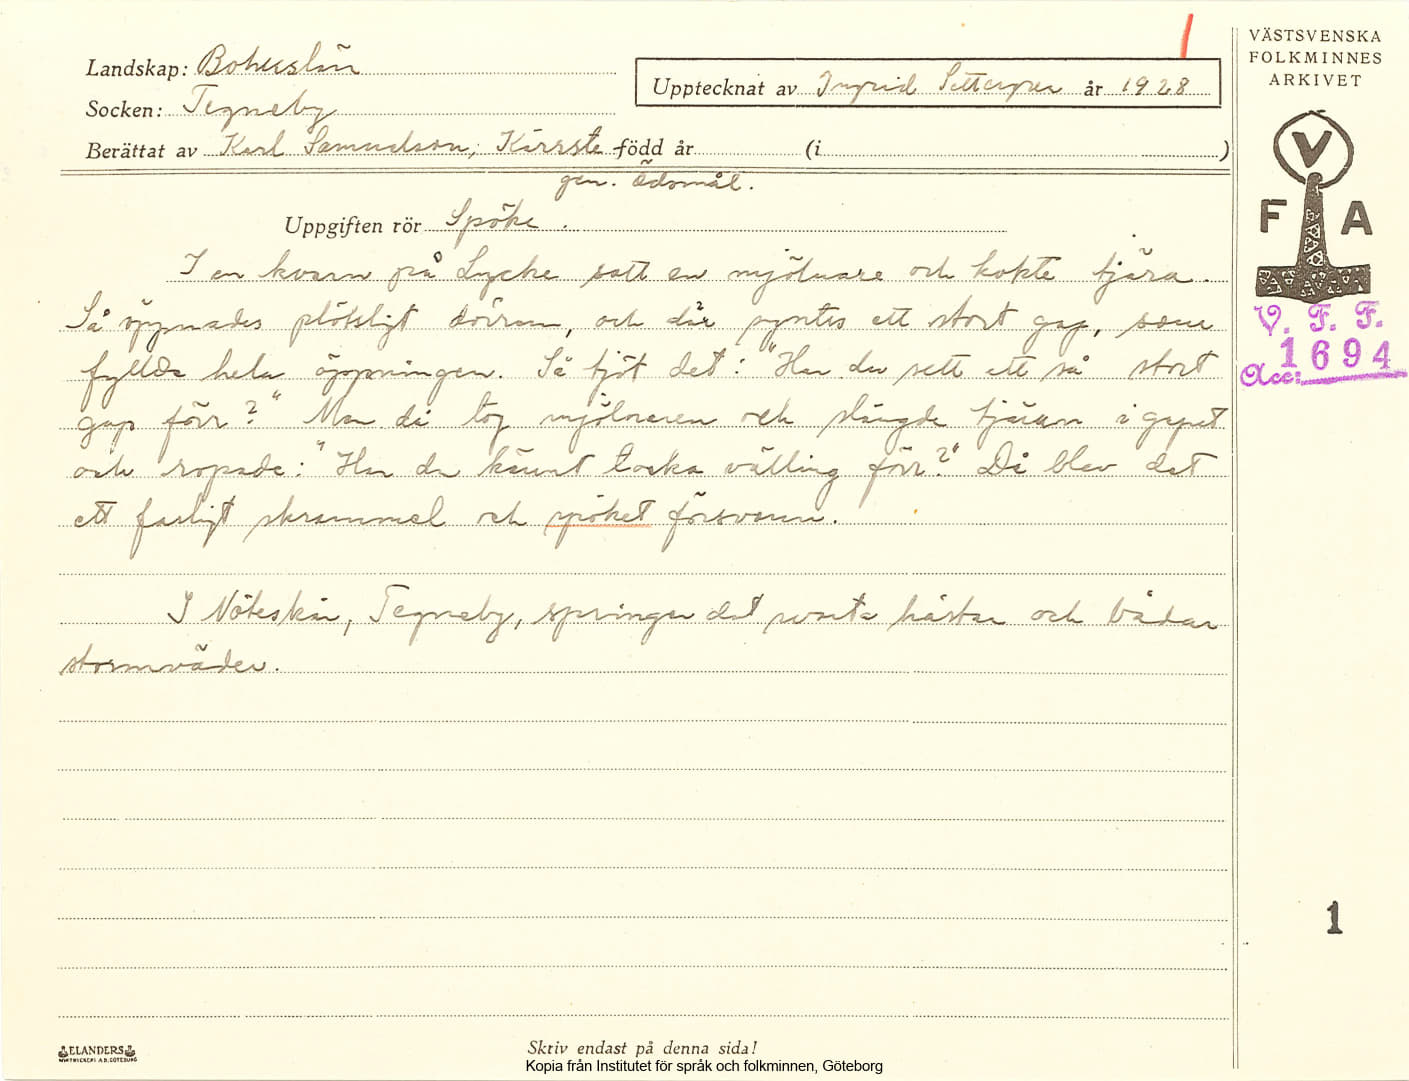 VÄSTSVENSKA
FOLKMINNES
ARKIVET
Landskap: Bohuslän
Upptecknat av Ingrid år 1928
Socken: Tegneby
Berättat av Karl Samuelson, Kärrste född år (i )
gen. Ödsmål.
Uppgiften rör Spöke.
I en kvarn på Lycke satt en mjölnare och kokte tjära.
Så öppnades plötsligt dörren, och där syntes ett stort gap, som
fyllde hela öppningen. Så tjöt det: "Har du sett ett så stort
gap förr?" Men då tog mjölnaren och slängde tjäran i gapet
och ropade: "Har du känt tocka välling förr?" Då blev det
ett farligt skrammel och spöket försvann.
I Nöteskär, Tegneby, springer det svarta hästar och bådar
stormväder.
V
F A
V. F. F.
1694
Acc:
1
ELANDERS
Skriv endast på denna sida!
Kopia från Institutet för språk och folkminnen, Göteborg